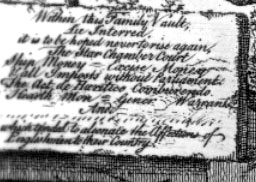 Within this Family Vault,
Lie Interred,
it is to be hoped never to rise again,
The Star Chamber Court
Ship Money — Excise Money
All Imposts without Parliament.
The Act de Haretico Comburendo
Hearth Mon: Gener: Warrants
And
to alienate the Affections of
their Country.